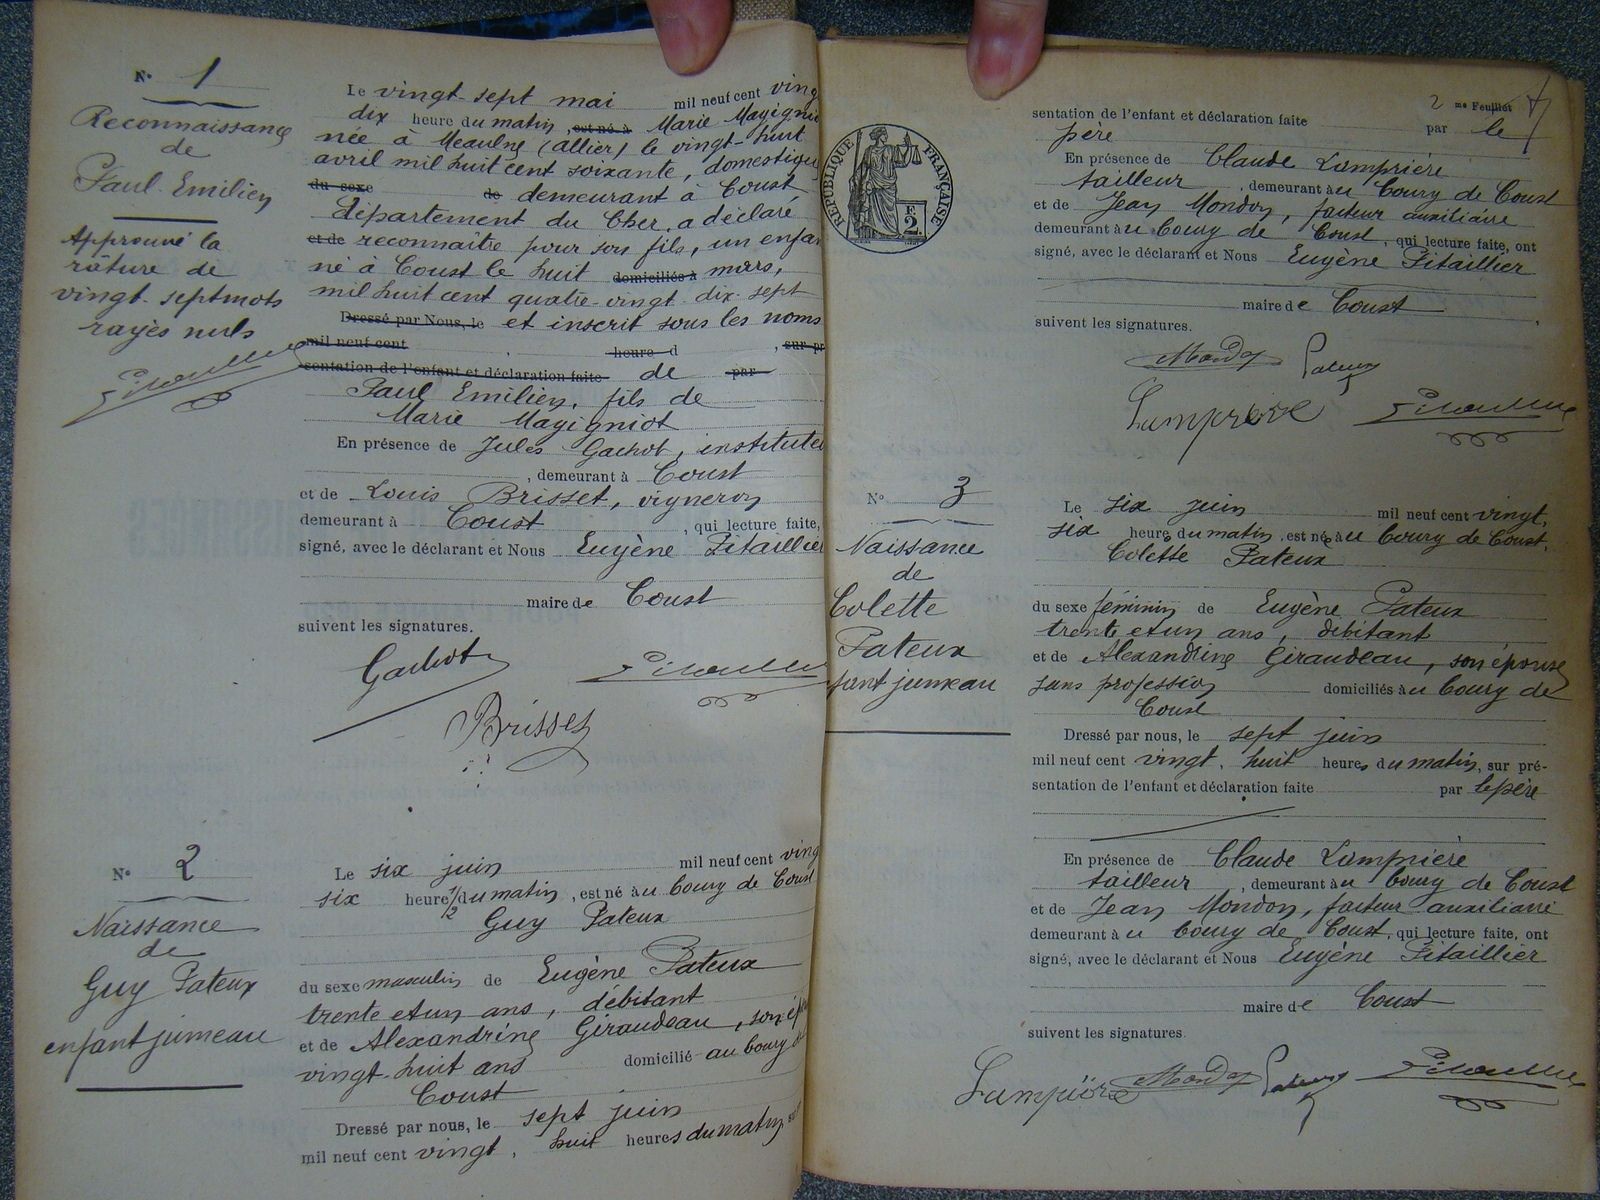 N° 1
Reconnaissance
de
Paul Emilien
Approuvé la
râture de
vingt-sept mots
rayés nuls
Le vingt-sept mai mil neuf cent ving
dix heure du matin, est né à Marie Magigni
née à Meaulne (Allier) le vingt-huit
avril mil huit cent soixante, domestiqu
du sexe de demeurant à Coust
département du Cher, a déclaré
et de reconnaître pour son fils, un enfan
né à Coust le huit domiciliés à mars,
mil huit cent quatre-vingt-dix-sept
Dressé par Nous, le et inscrit sous les noms
mil neuf cent heure d , sur pr
sentation de l'enfant et déclaration faite de par
Paul Emilien, fils de
Marie Magigniot
En présence de Jules Gachot, institute
, demeurant à Coust
et de Louis Brisset, vigneron
demeurant à Coust , qui lecture faite,
signé, avec le déclarant et Nous Eugène Pitaillier
maire de Coust
suivent les signatures.
Gachot
Brisset
N° 2
Naissance
de
Guy Pateux
enfant jumeau
Le six juin mil neuf cent ving
six heure 1/2 du matin, est né au bourg de Coust
Guy Pateux
du sexe masculin de Eugène Pateux
trente et un ans, débitant
et de Alexandrine Giraudeau, son ép
vingt-huit ans domicilié au bourg d
Coust
Dressé par nous, le sept juin
mil neuf cent vingt, huit heures du matin, su
2 me Feuillet
sentation de l'enfant et déclaration faite par le
père
RÉPUBLIQUE FRANÇAISE
F 2
En présence de Claude Lamprière
tailleur, demeurant au bourg de Coust
et de Jean Mondon, facteur auxiliaire
demeurant au bourg de Coust, qui lecture faite, ont
signé, avec le déclarant et Nous Eugène Pitaillier
maire de Coust
suivent les signatures.
Mondon Pateux
Lamprière
N° 3
Naissance
de
Colette
Pateux
fant jumeau
Le six juin mil neuf cent vingt,
six heure du matin, est née au bourg de Coust,
Colette Pateux
du sexe féminin de Eugène Pateux
trente et un ans, débitant
et de Alexandrine Giraudeau, son épouse
sans profession domiciliés au bourg de
Coust
Dressé par nous, le sept juin
mil neuf cent vingt, huit heures du matin, sur pré-
sentation de l'enfant et déclaration faite par le père
En présence de Claude Lamprière
tailleur, demeurant au bourg de Coust
et de Jean Mondon, facteur auxiliaire
demeurant au bourg de Coust, qui lecture faite, ont
signé, avec le déclarant et Nous Eugène Pitaillier
maire de Coust
suivent les signatures.
Lamprière Mondon Pateux